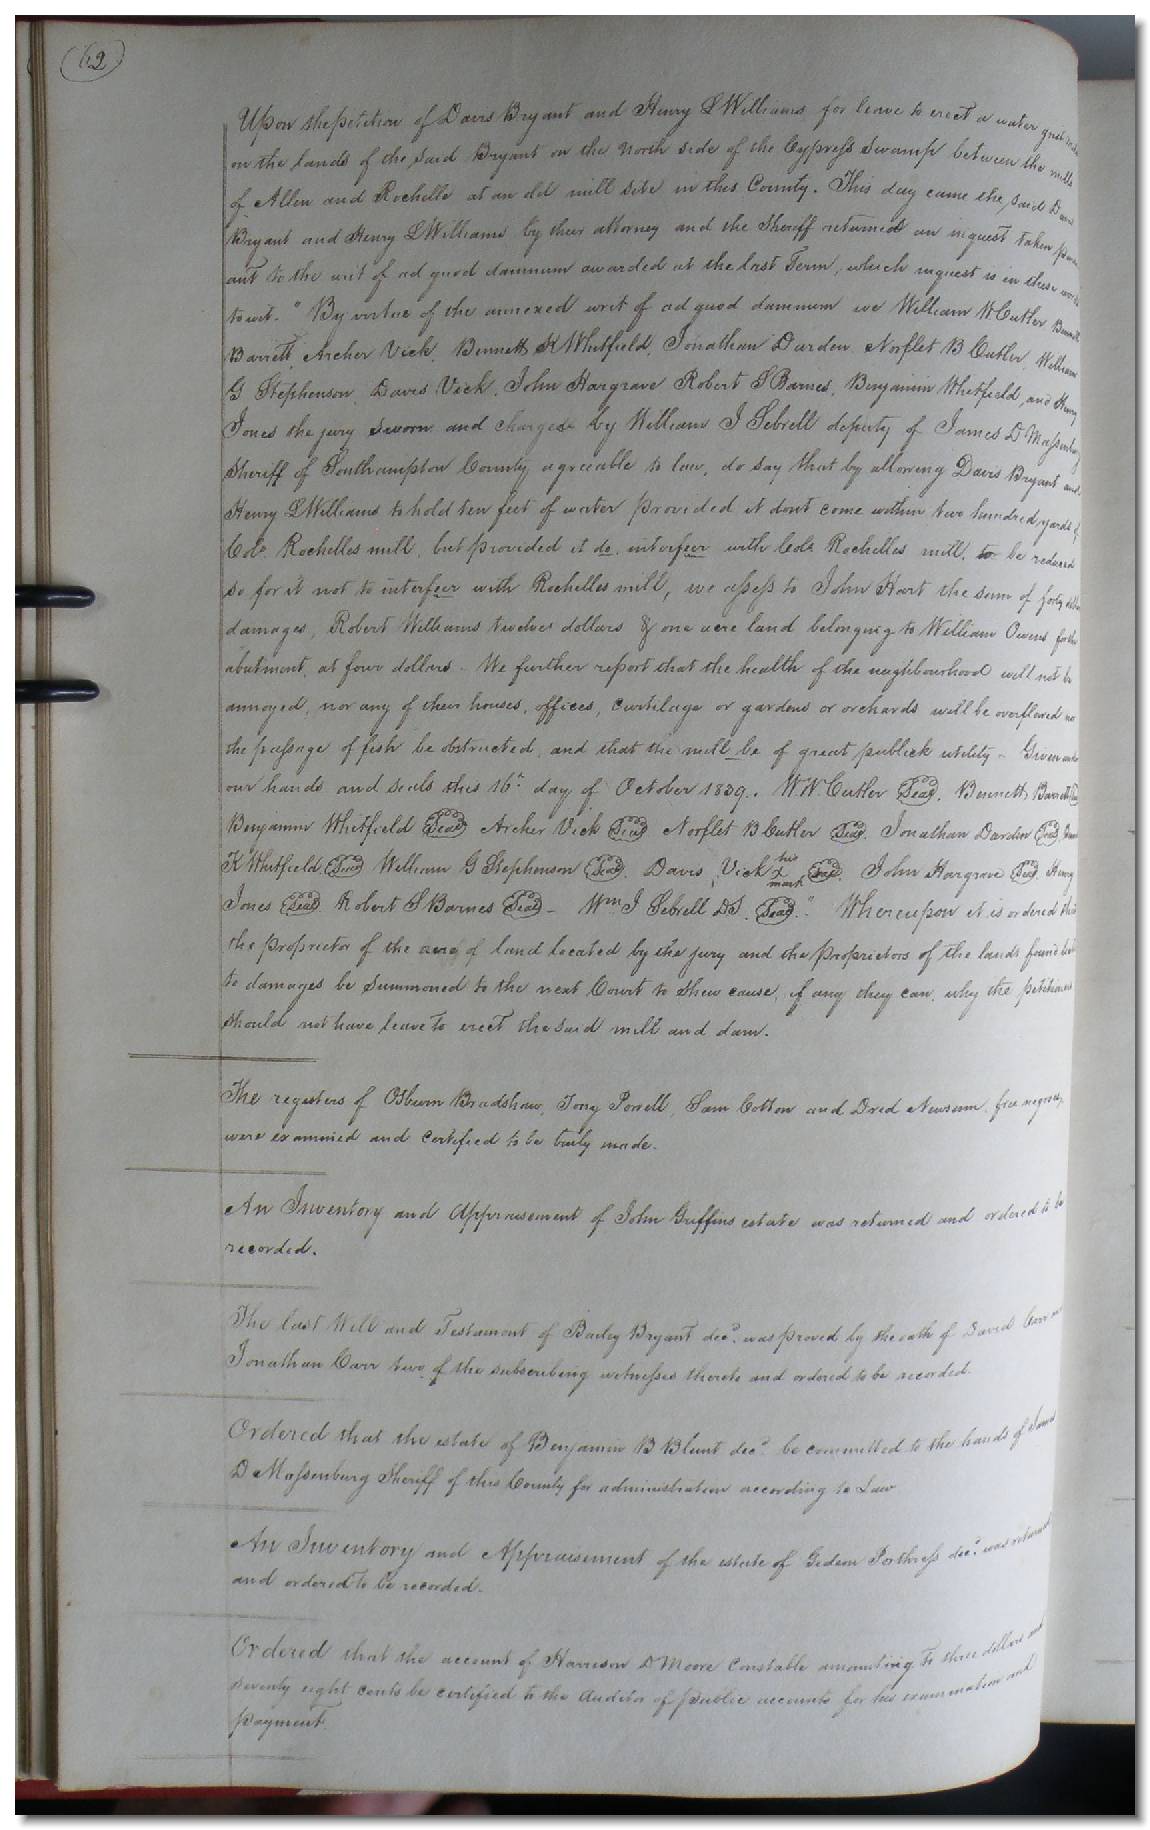 62
Upon the petition of Davis Bryant and Henry L Williams for leave to erect a water grist
on the lands of the said Bryant on the north side of the Cypress Swamp between the mills
of Allen and Rochelle at an old mill site in this County. This day came the said
Bryant and Henry L Williams by their attorney and the Sheriff returned an inquest taken
ant to the writ of ad quod damnum awarded at the last Term, which inquest is in these words
towit. "By virtue of the annexed writ of ad quod damnum we William W Cutler
Barrett, Archer Vick, Bennett K Whitfield, Jonathan Darden, Norflet B Cutler, William
G Stephenson, Davis Vick, John Hargrave Robert S Barnes, Benjamin Whitfield, and Henry
Jones the jury sworn and charged by William J Sebrell deputy of James D Massenburg
Sheriff of Southampton County agreeable to law, do say that by allowing Davis Bryant and
Henry L Williams to hold ten feet of water provided it dont come within two hundred yards of
Colo. Rochelles mill, but provided it do interfeer with Colo. Rochelles mill, to be reduced
so for it not to interfeer with Rochelles mill, we assess to John Hart the sum of forty
damages, Robert Williams twelve dollars & one acre land belonging to William Owens for the
abutment, at four dollars. We further report that the health of the neighbourhood will not be
annoyed, nor any of their houses, offices, curtilage or gardens or orchards will be overflowed
the passage of fish be obstructed, and that the mill be of great publick utility - Given under
our hands and seals this 16th day of October 1839. W W. Cutler Seal. Bennett Barrett
Benjamin Whitfield Seal Archer Vick Seal Norflet B Cutler Seal. Jonathan Darden Seal
K Whitfield Seal William G Stephenson Seal. Davis Vick his X mark Seal. John Hargrave Seal. Henry
Jones Seal Robert S Barnes Seal - Wm J Sebrell D S. Seal." Whereupon it is ordered that
the proprietor of the acre of land located by the jury and the proprietors of the lands found
to damages be summoned to the next Court to shew cause, if any they can, why the petitioners
should not have leave to erect the said mill and dam.
The registers of Osburn Bradshaw, Tony Powell, Sam Cotton and Dred Newsum, free negroes,
were examined and certified to be truly made.
An Inventory and Appraisement of John Griffins estate was returned and ordered to be
recorded.
The last Will and Testament of Bailey Bryant decd. was proved by the oath of David Carr
Jonathan Carr two of the subscribing witnesses thereto and ordered to be recorded.
Ordered that the estate of Benjamin B Blunt decd. be committed to the hands of James
D Massenburg Sheriff of this County for administration according to Law
An Inventory and Appraisement of the estate of Gideon Porthress decd. was returned
and ordered to be recorded.
Ordered that the account of Harrison D Moore Constable amounting to three dollars and
seventy eight cents be certified to the Auditor of public accounts for his examination and
payment.